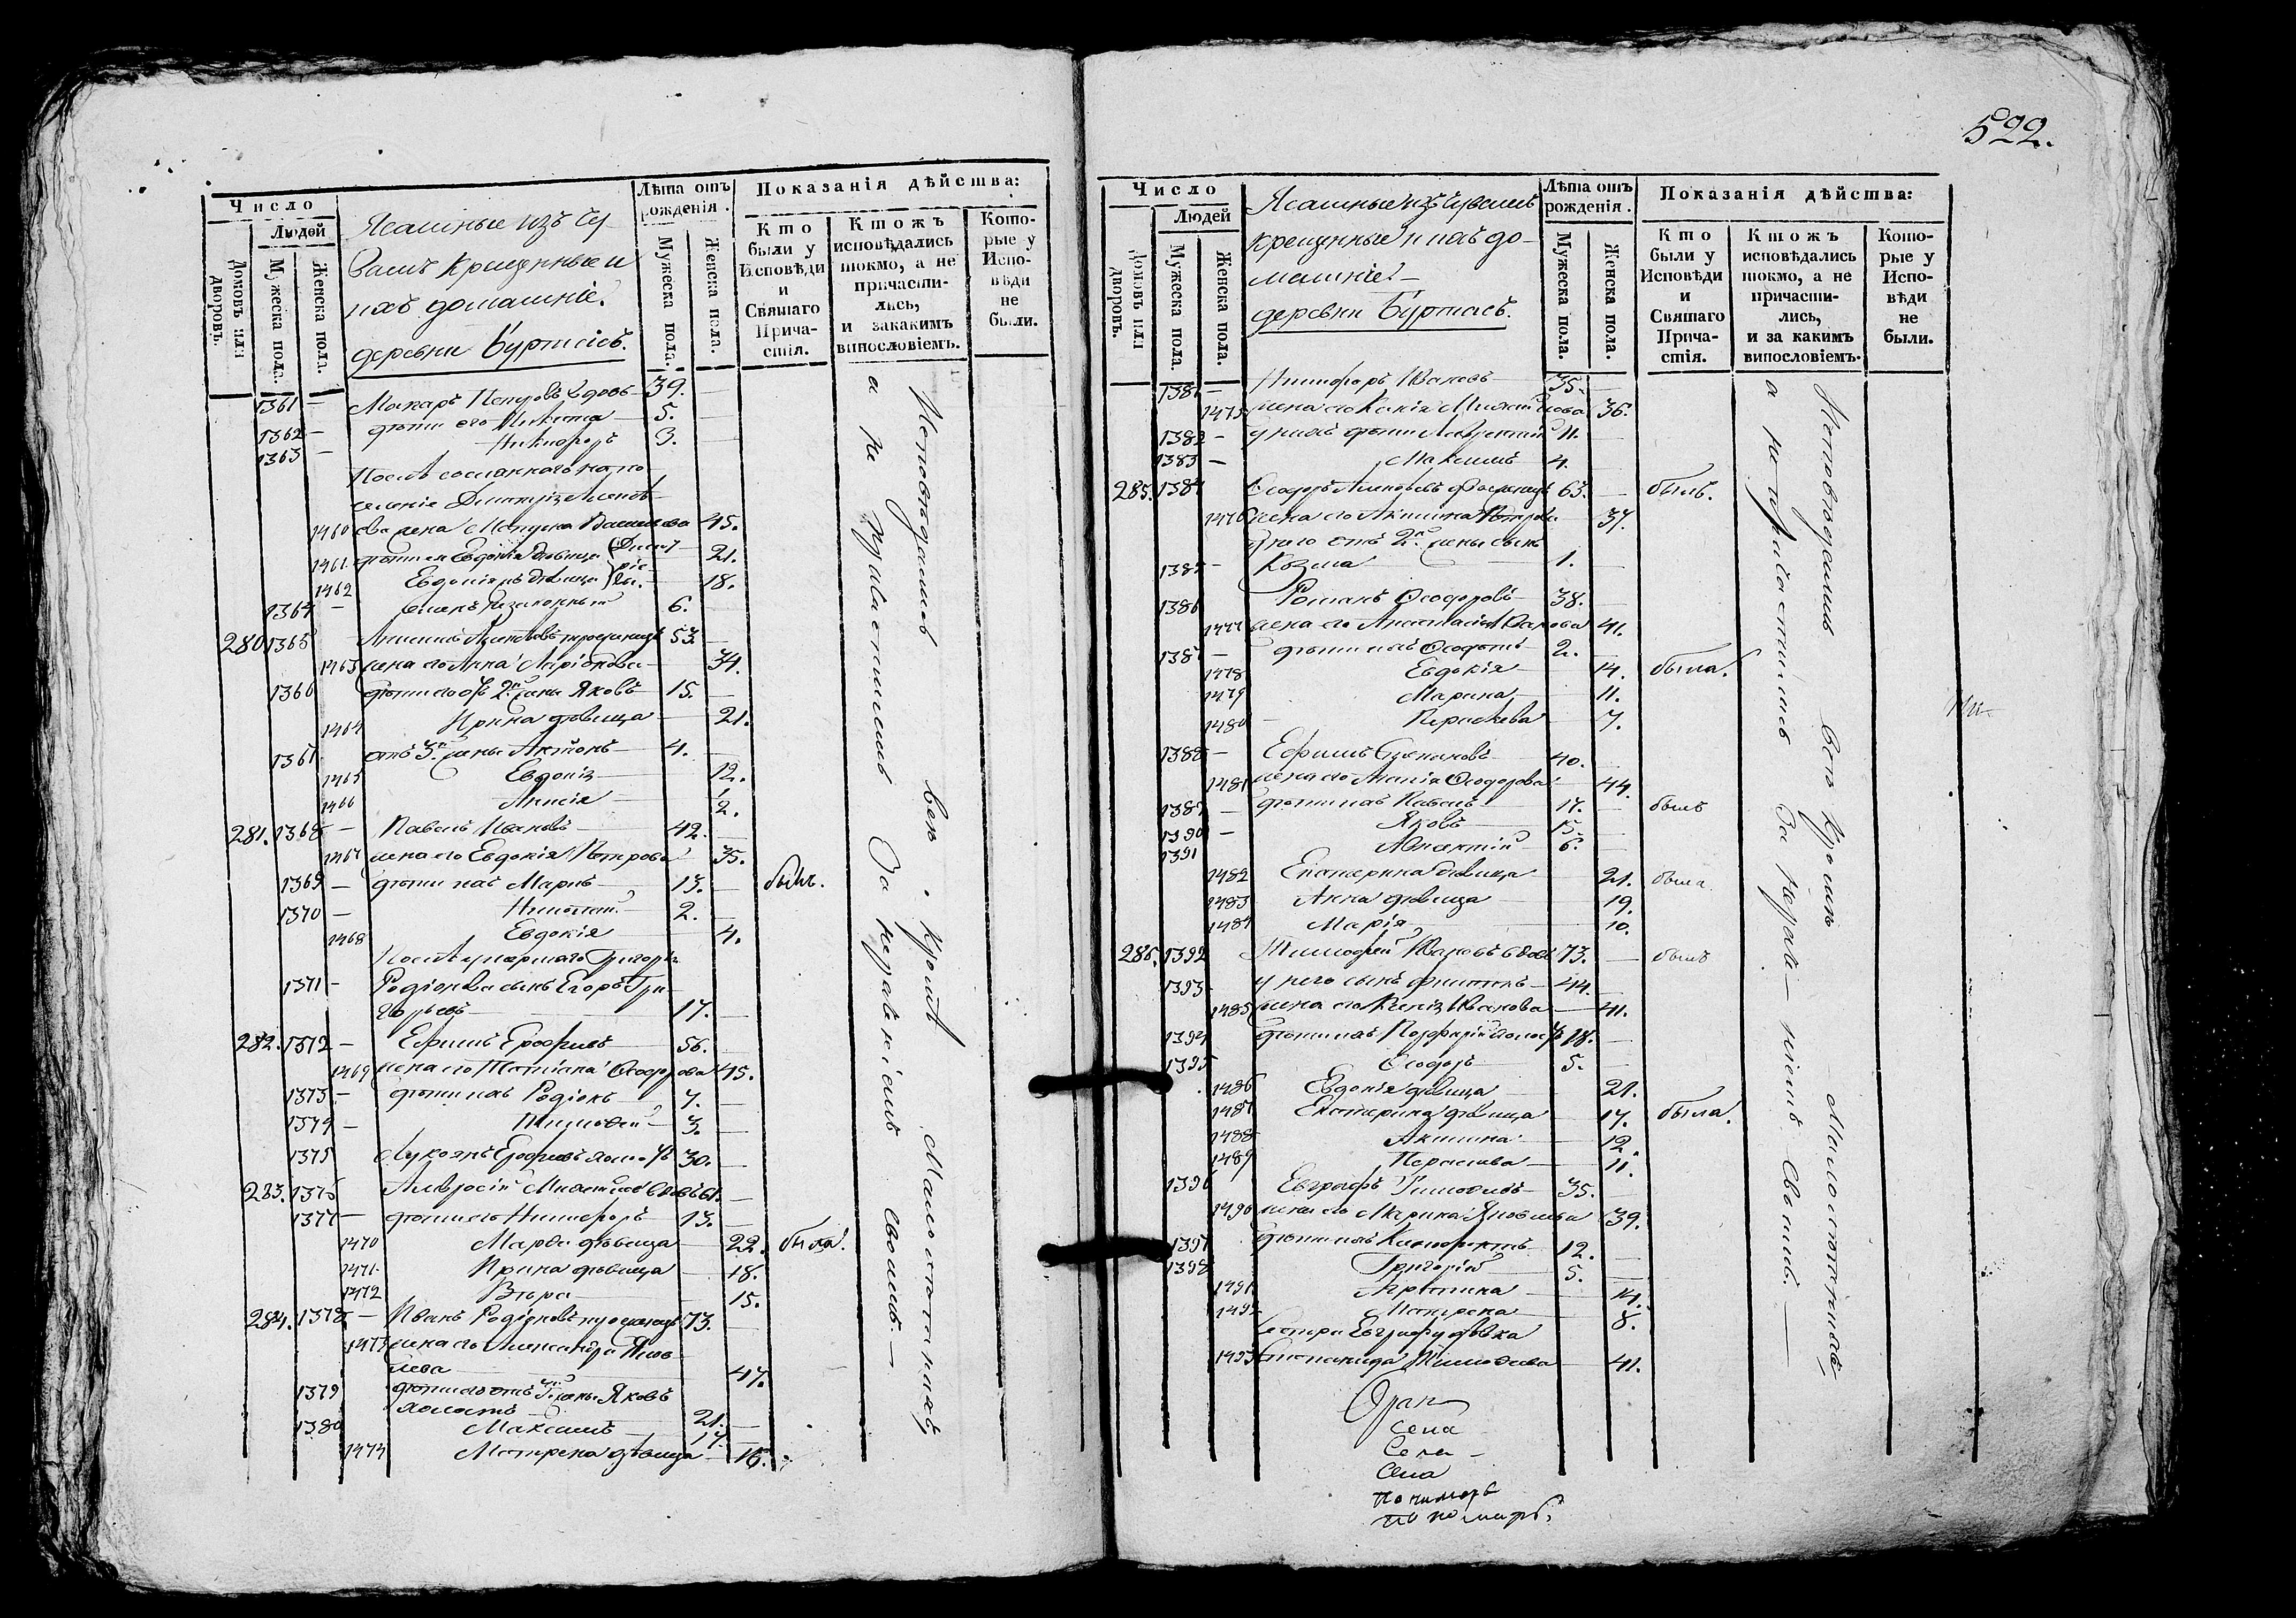 Число
Людей
Домовъ или дворовъ.
Мужеска пола.
Женска пола.
Ясашные изъ Чу-
вашъ крещенные и
ихъ домашніе.
деревни Буртасъ.
Лѣта отъ рожденія.
Мужеска пола.
Женска пола.
Показанія дѣйства:
Кто были у Исповѣди и Святаго Причастія.
Ктожъ исповѣдались токмо, а не причастились, и закакимъ винословіемъ.
Которые у Исповѣди не были.
1361 — Макаръ Петровъ вдовъ — 39. —
1362 — дѣти его Никита — 5. —
1363 — Никифоръ 3. —
Послѣ сосланнаго на по-
селеніе Дмитрія
1460 жена Матрена Васильева 45.
1461 Евдокія дѣвица 21.
1462 Евдокія дѣвица 18.
1364 — незаконный 6.
280 1365 53. —
1463 жена его Анна Ларіонова — 34.
1366 дѣти его отъ 2й жены Яковъ — 15. —
1464 Ирина дѣвица — 21.
1367 отъ 3й жены Антонъ — 4. —
1465 Евдокія — 12.
1466 Анисія — 2.
281. 1368 — Павелъ Ивановъ — 42. —
1467 жена его Евдокія Петрова 35.
1369 — дѣти ихъ Маркъ — 13. — былъ.
1370 — Николай — 2. —
1468 Евдокія 4.
Послѣ умершаго Григорья
1371 — Родіонова сынъ Егоръ Гри-
горьевъ — 17. —
282. 1372 — Ефимъ Ерофеевъ — 56. —
1469 жена его Татіана Ѳеодорова 45.
1373 — дѣти ихъ Родіонъ 7. —
1374 — Тимофей — 3. —
1375 Лукоянъ Ерофеевъ холостъ 30. —
283. 1376 Амвросій вдовъ 61. —
1377 — дѣти его Никифоръ — 13. —
1470 Марѳа дѣвица — 22. была.
1471 Ирина дѣвица — 18.
1472 Вѣра — 15.
284. 1378 — Иванъ Родіоновъ 73. —
1473 жена его Александра Яков-
лева — 47.
1379 дѣти его отъ жены Яковъ
холостъ 21. —
1380 Максимъ — 17. —
1474 Матрена дѣвица — 16.
Исповѣдались всѣ кромѣ Малолѣтнихъ,
а не причастились за нераченіемъ своимъ. —
522.
Число
Людей
Домовъ или дворовъ.
Мужеска пола
Женска пола.
Ясашные изъ Чувашъ
крещенные и ихъ до-
машніе —
деревни Буртасъ.
Лѣта отъ рожденія.
Мужеска пола.
Женска пола.
Показанія дѣйства:
Кто были у Исповѣди и Святаго Причастія.
Ктожъ исповѣдались токмо, а не причастились, и за какимъ винословіемъ.
Которые у Исповѣди не были.
1381 — Никифоръ Ивановъ — 35. —
1475 жена его Ксенія 36.
1382 — у нихъ дѣти 11. —
1383 — Максимъ — 4.
285. 1384 Ѳеодоръ 63. — былъ.
1476 жена его Акилина Петрова 37.
у него отъ 2й жены сынъ
1385 — Козма — 1. —
1386 Романъ Ѳеодоровъ — 38. —
1477 жена его Анастасія 41.
1387 — дѣти ихъ 2. —
1478 Евдокія — 14. была.
1479 Марина — 11.
1480 — Параскева — 7.
1388 — Ефимъ Степановъ — 40. —
1481 жена его Ѳеодорова 44.
1389 — дѣти ихъ Павелъ — 17. — былъ
1390 — Яковъ — 15. —
1391 6. —
1482 Екатерина дѣвица 21. была.
1483 Анна дѣвица — 19.
1484 Марія — 10.
286. 1392 Тимофей Ивановъ вдовъ 73. — былъ
1393 — у него сынъ 44. —
1485 жена его Ксенія Иванова — 41.
1394 дѣти ихъ Порфирій холостъ 18. —
1395 Ѳеодоръ — 5. —
1486 Евдокія дѣвица — 21.
1487 Екатерина дѣвица — 17. была.
1488 Акилина — 12.
1489 Параскева — 11.
1396 Евграфъ Тимофеевъ — 35. —
1490 жена его Марина Яковлева 39.
1397 дѣти ихъ 12. —
1398 Григорій 5. —
1491 14.
1492 Матрена 8.
сестра Евграфу дѣвка
1493 Степанида Тимофеева — 41.
Исповѣдались всѣ кромѣ Малолѣтнихъ,
а не причастились за нераченіемъ своимъ. —
Сена
Сена —
Сена
Пономарь
пономарь.